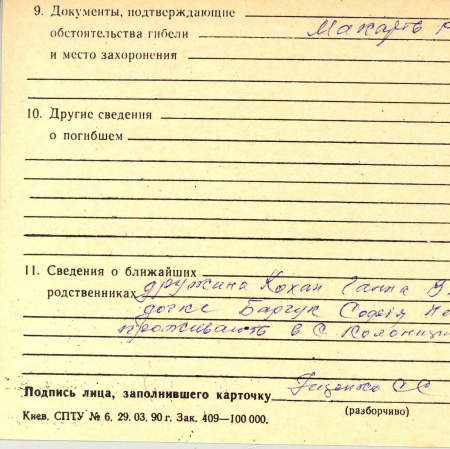 9. Документы, подтверждающие
обстоятельства гибели
и место захоронения
10. Другие сведения
о погибшем
11. Сведения о ближайших
родственниках дружина Кохан Ганна В
Барчук Софія
проживают в с
Подпись лица, заполнившего карточку
(разборчиво)
Киев. СПТУ № 6. 29. 03. 90 г. Зак. 409—100 000.